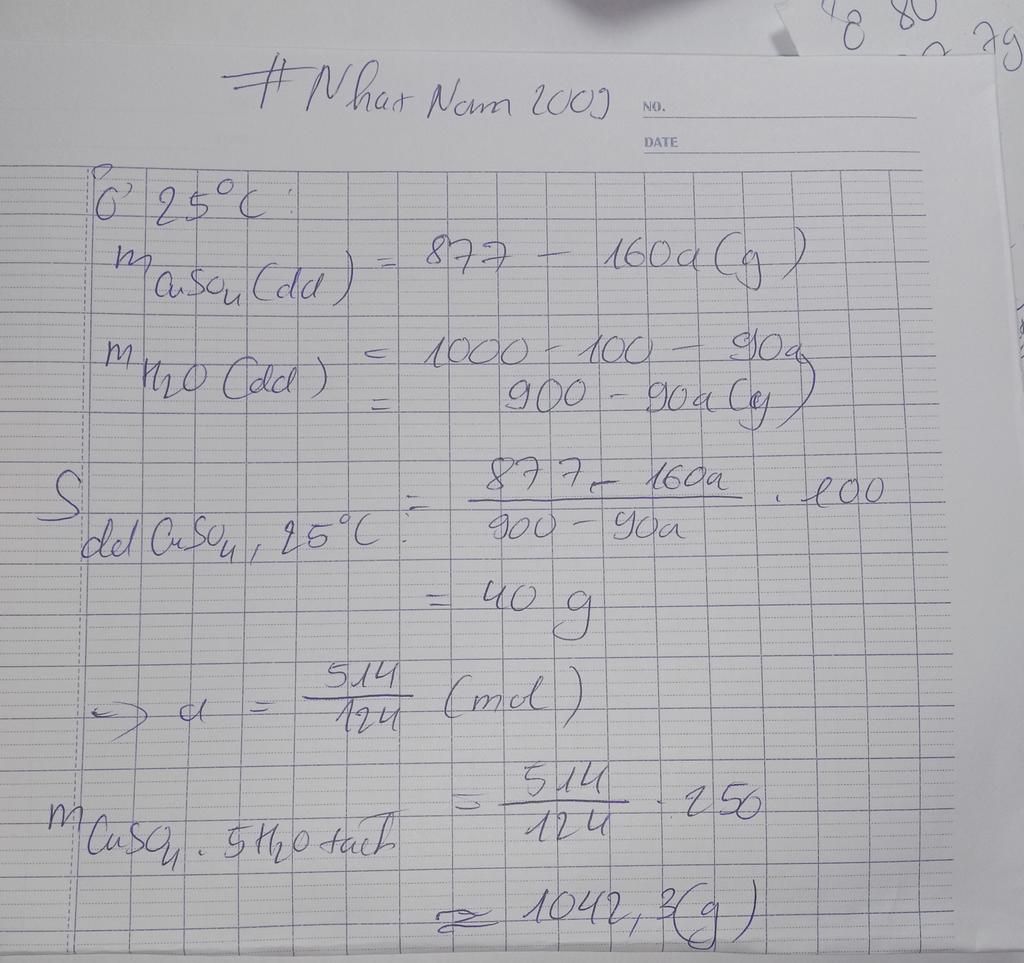 80
8
79
#Nhat Nam 2009
NO.
DATE
Ở 25°C:
mCuSO4(dd) = 877 - 160a(g)
mH2O(dd) = 1000 - 100 - 90a
= 900 - 90a(g)
Sdd CuSO4, 25°C: = (877 - 160a)/(900 - 90a) . 100
= 40 g
<-> a = 514/124 (mol)
mCuSO4.5H2O tach = 514/124 . 250
≈ 1042,3(g)